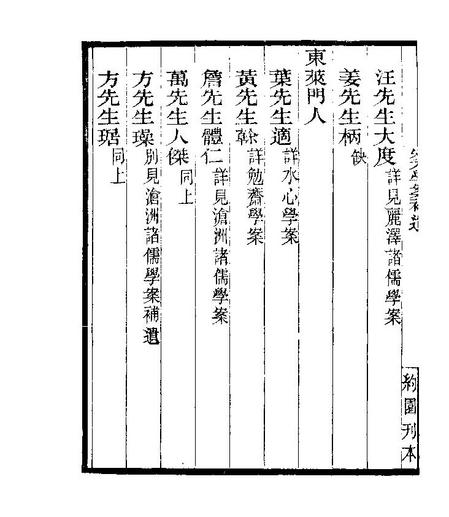 約園刊本
汪先生大度詳見麗澤諸儒學案
姜先生柄缺
東萊門人
葉先生適詳水心學案
黃先生榦詳勉齋學案
詹先生體仁詳見滄洲諸儒學案
萬先生人傑同上
方先生璪別見滄洲諸儒學案補遺
方先生琚同上